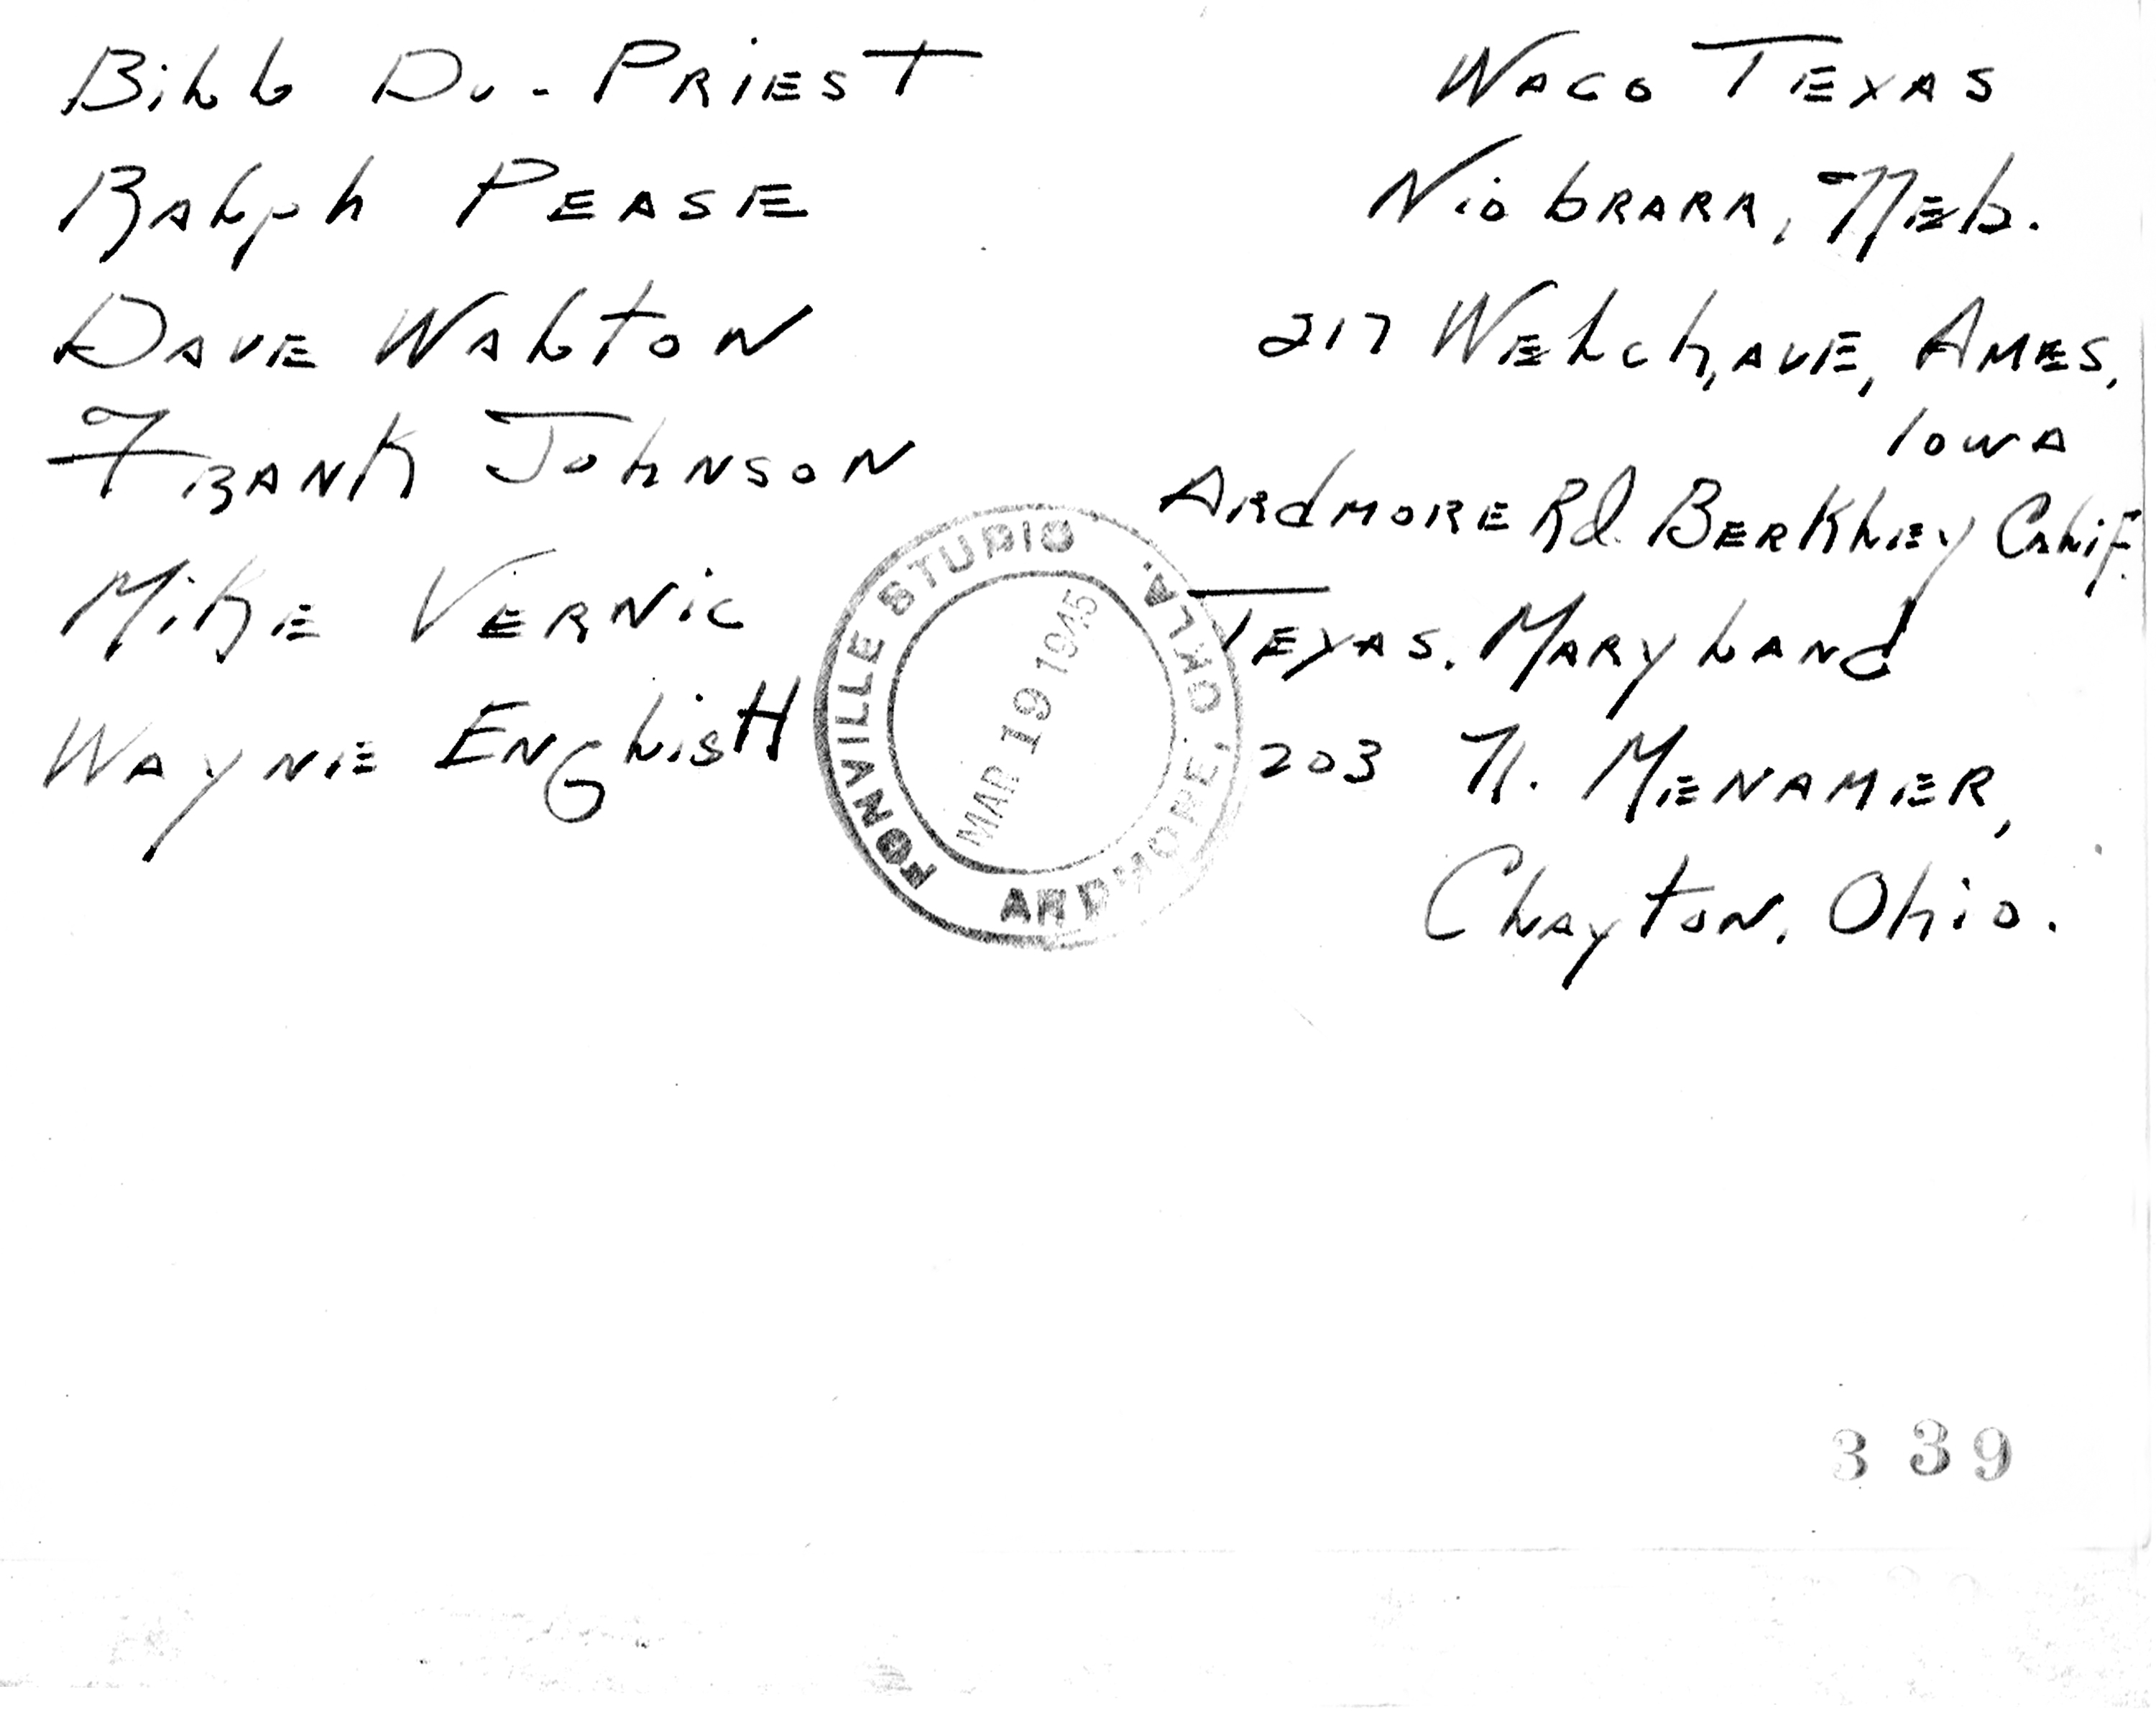 Bill Du-Priest Waco Texas
Ralph Pease Niobrara, Neb.
Dave Walton 217 Welch, Ave, Ames,
Iowa
Frank Johnson Ardmore Rd. Berkley Calif.
Mike Vernic Texas, Maryland
Wayne English 203 N. Menamer,
Clayton, Ohio.
FONVILLE STUDIO
ARDMORE, OKLA.
MAR 19 1945
339